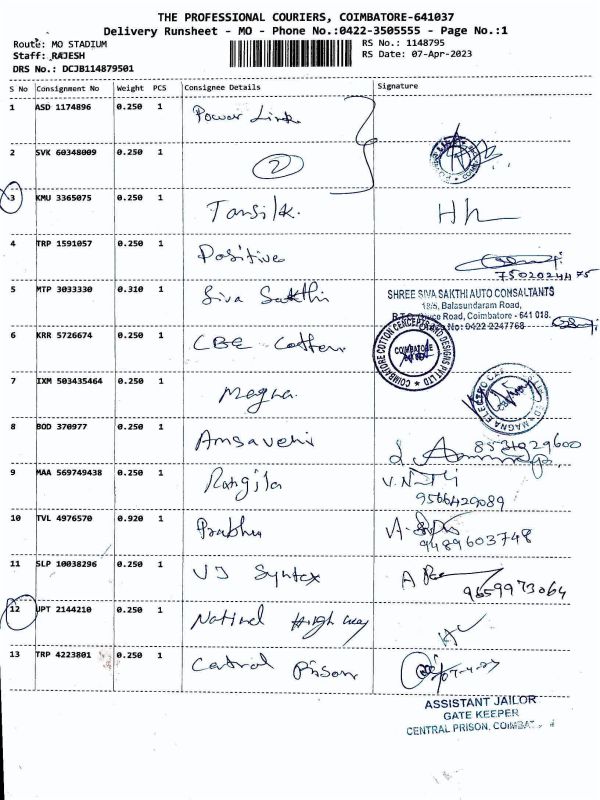 THE PROFESSIONAL COURIERS, COIMBATORE-641037
Delivery Runsheet - MO - Phone No.:0422-3505555 - Page No.:1
Route: MO STADIUM
RS No.: 1148795
Staff: RAJESH
RS Date: 07-Apr-2023
DRS No.: DCJB114879501
S No Consignment No Weight PCS Consignee Details Signature
1 ASD 1174896 0.250 1 Power Link
2 SVK 60348009 0.250 1 2
3 KMU 3365075 0.250 1 Tansilk
4 TRP 1591057 0.250 1 Positive
7502024475
5 MTP 3033330 0.310 1 Siva Sakthi
SHREE SIVA SAKTHI AUTO COMSALTANTS
18/5, Balasundaram Road,
Road, Coimbatore - 641 018.
No: 0422 2247768
6 KRR 5726674 0.250 1 CBE Cotton
COIMBATORE COTTON CENCEPTS AND DESIGNS PVT LTD
COIMBATORE
7 IXM 503435464 0.250 1 Magna
MAGNA ELECTRO
8 BOD 370977 0.250 1 Amsaveni
8531029600
9 MAA 569749438 0.250 1 Rangila
9566429089
10 TVL 4976570 0.920 1 Prabhu
9489603748
11 SLP 10038296 0.250 1 VJ Syntex
9659973064
12 JPT 2144210 0.250 1 Natinel High way
13 TRP 4223801 0.250 1 Catrol Prison
ASSISTANT JAILOR
GATE KEEPER
CENTRAL PRISON,